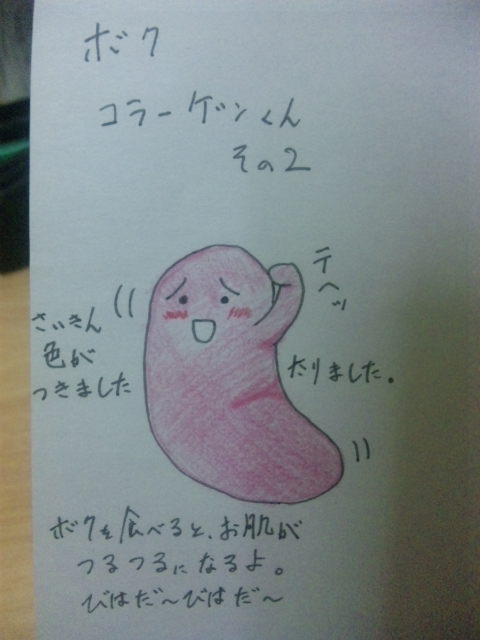 ボク
コラーゲンくん
その2
テヘッ
さいきん
色が
つきました
たりました。
ボクを食べると、お肌が
つるつるになるよ。
びはだ〜びはだ〜